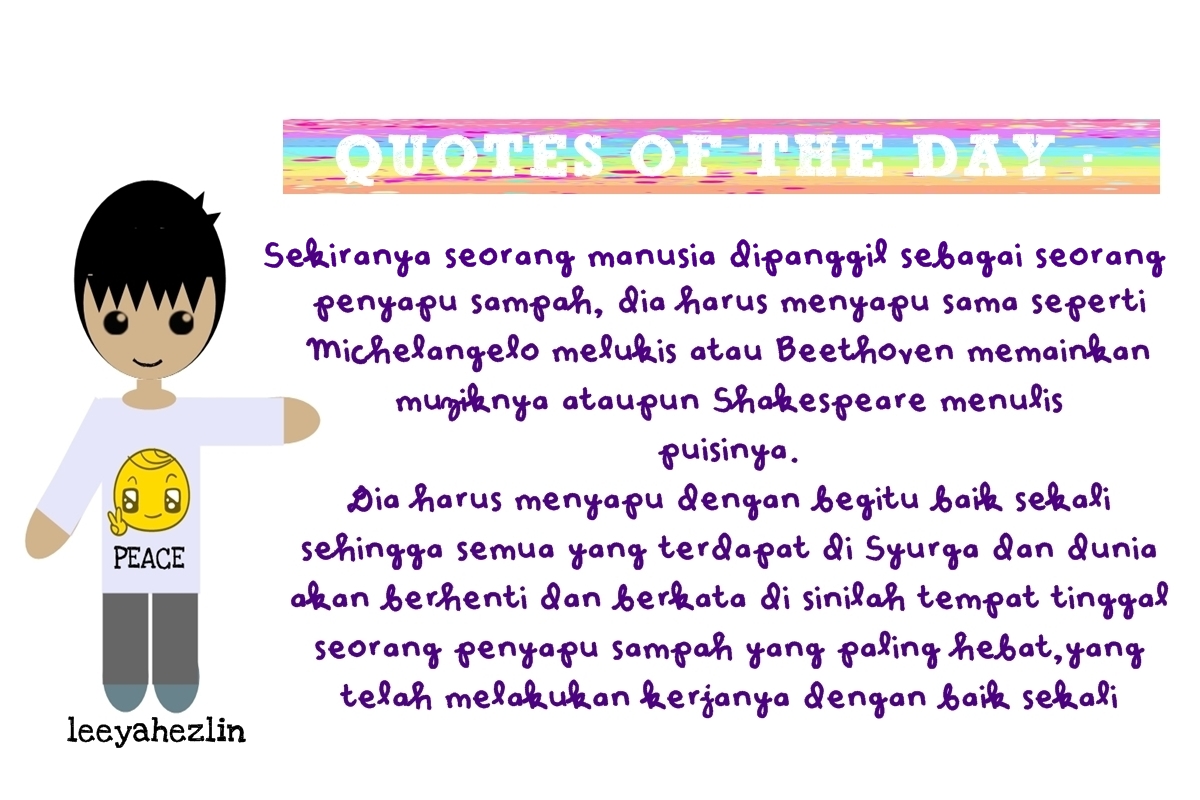 QUOTES OF THE DAY :
Sekiranya seorang manusia dipanggil sebagai seorang
penyapu sampah, dia harus menyapu sama seperti
Michelangelo melukis atau Beethoven memainkan
muziknya ataupun Shakespeare menulis
puisinya.
Dia harus menyapu dengan begitu baik sekali
sehingga semua yang terdapat di Syurga dan dunia
akan berhenti dan berkata di sinilah tempat tinggal
seorang penyapu sampah yang paling hebat,yang
telah melakukan kerjanya dengan baik sekali
PEACE
leeyahezlin